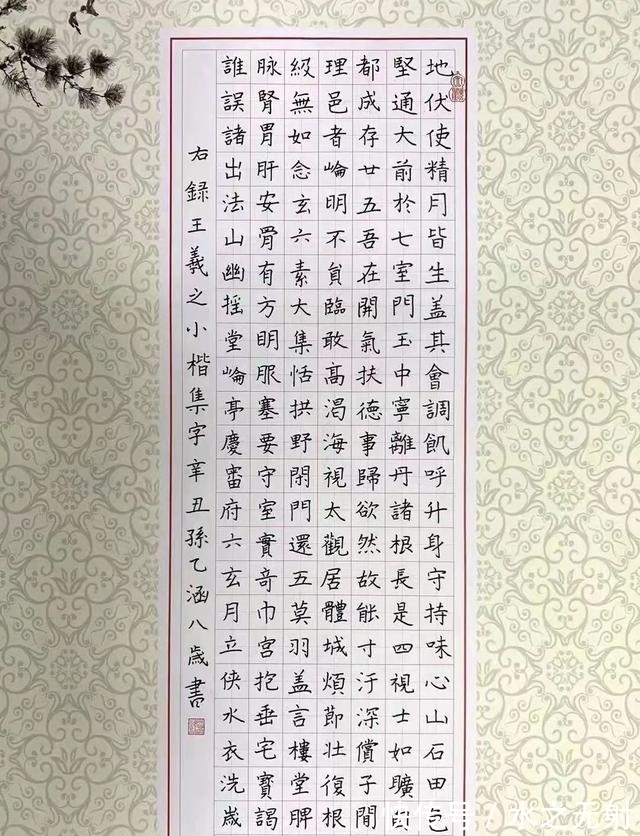 地伏使精月皆生盖其會調飢呼升身守持味心山石田
堅通大前於七室門玉中寧離丹諸根長是四視士如曠
都成存廿五吾在開氣扶德事歸欲然故能寸汙深償子閒
理邑者崘明不貟臨敢高渴海視太觀居體城煩節壯復根
級無如念玄六素大集恬拱野閑門還五莫羽盖言樓堂脾
脉腎胃肝安骨有方明服塞要守室實奇巾宮抱垂宅寶謁
誰誤諸出法山幽揺堂崘亭慶審府六玄月立俠水衣洗歲
右錄王羲之小楷集字辛丑孫乙涵八歲書